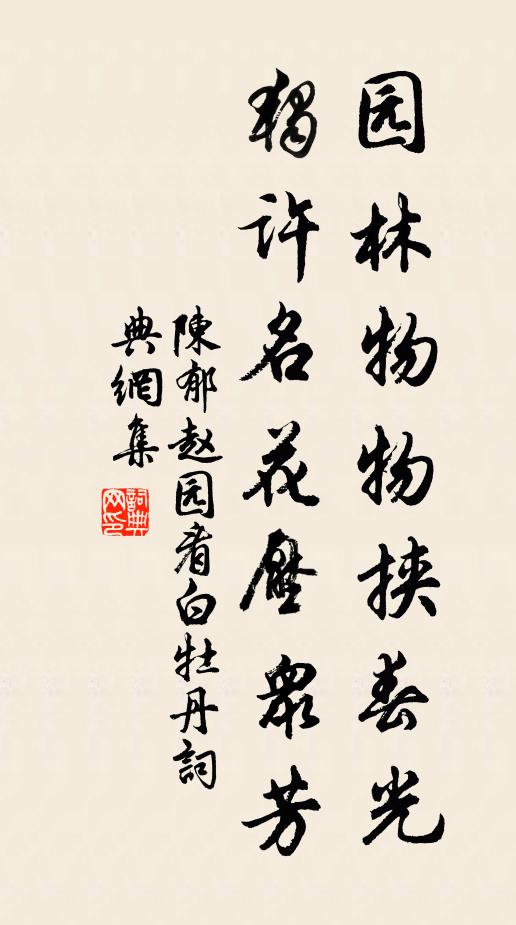 园林物物挟春光
獨許名花壓眾芳
陳郁赵园看白牡丹詞
典網集
詞典网印